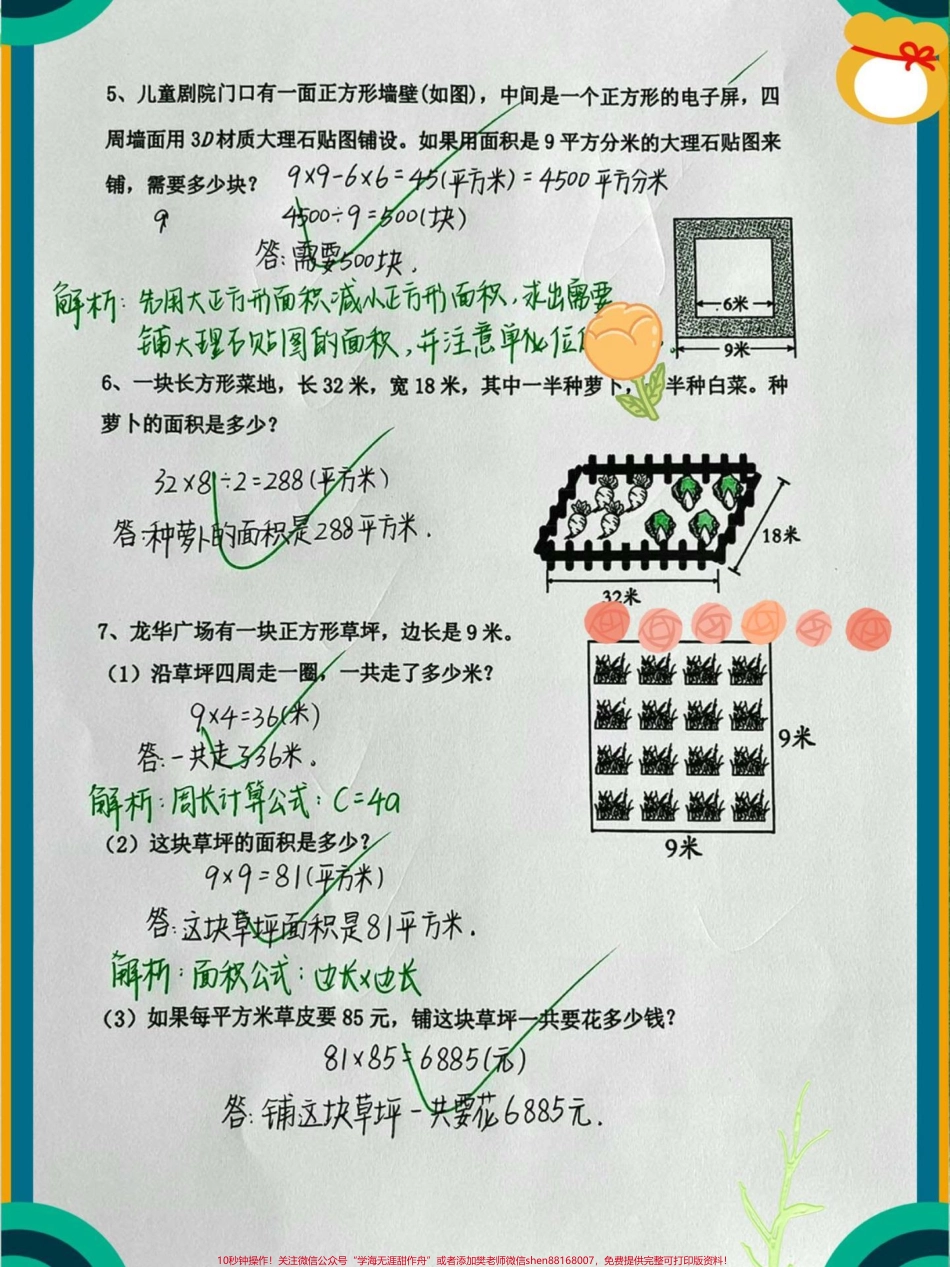 5、儿童剧院门口有一面正方形墙壁(如图)，中间是一个正方形的电子屏，四
周墙面用3D材质大理石贴图铺设。如果用面积是9平方分米的大理石贴图来
铺，需要多少块？ 9×9-6×6=45(平方米)=4500平方分米
4500÷9=500(块)
答:需要500块.
解析:先用大正方形面积减小正方形面积,求出需要
铺大理石贴图的面积,并注意单位
6米
9米
6、一块长方形菜地，长32米，宽18米，其中一半种萝卜， 半种白菜。种
萝卜的面积是多少？
32×8÷2=288(平方米)
答:种萝卜的面积是288平方米.
18米
32米
7、龙华广场有一块正方形草坪，边长是9米。
（1）沿草坪四周走一圈，一共走了多少米？
9×4=36(米)
答:一共走了36米。
解析:周长计算公式:C=4a
9米
9米
（2）这块草坪的面积是多少？
9×9=81(平方米)
答:这块草坪面积是81平方米.
解析:面积公式:边长×边长
（3）如果每平方米草皮要85元，铺这块草坪一共要花多少钱？
81×85=6885(元)
答:铺这块草坪一共要花6885元.
10秒钟操作！关注微信公众号“学海无涯甜作舟”或者添加樊老师微信shen88168007，免费提供完整可打印版资料！